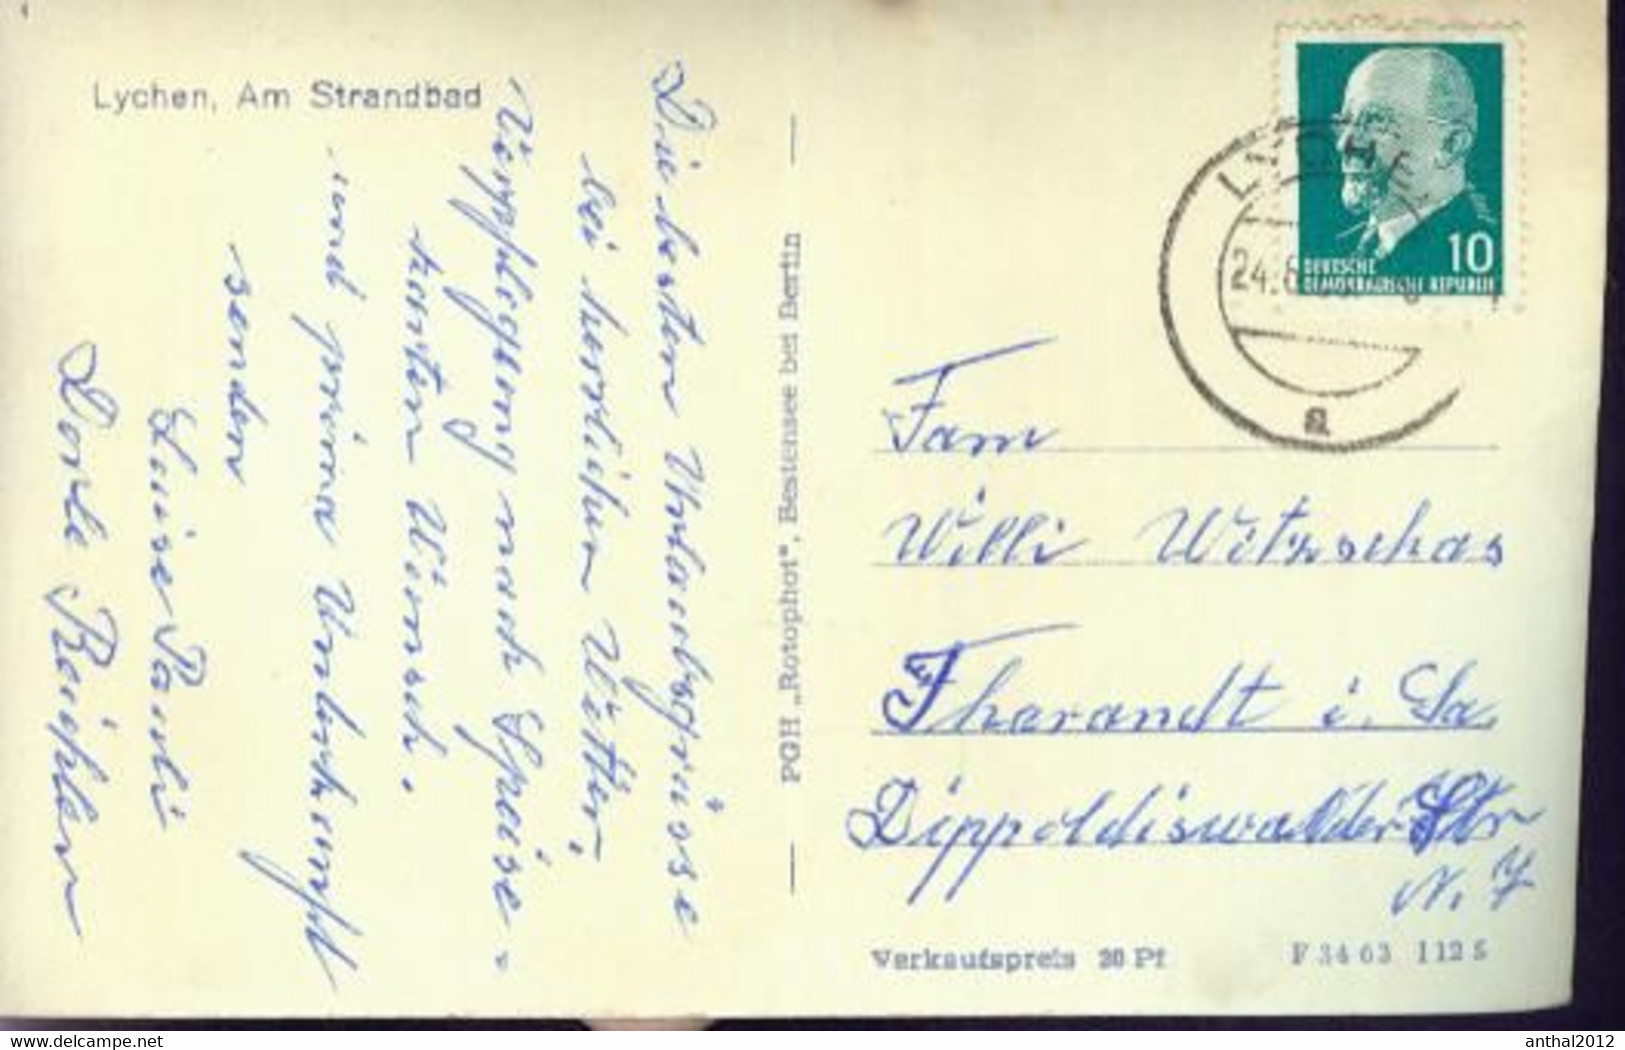 Lychen, Am Strandbad
Die besten Urlaubsgrüsse
bei herrlichen Wetter,
Verpflegung nach Speise-
karten Wunsch.
und prima Unterkunft
senden
Luise Pauli
Dorle Büchler
PGH „Rotophot", Bestensee bei Berlin
LYCHEN
24.6
a
10
DEUTSCHE
DEMOKRATISCHE REPUBLIK
Fam
Willi Witzschas
Tharandt i. Sa.
Dippoldiswalder Str
N. 7
Verkaufspreis 20 Pf
F 34 63 112 S
anthal2012